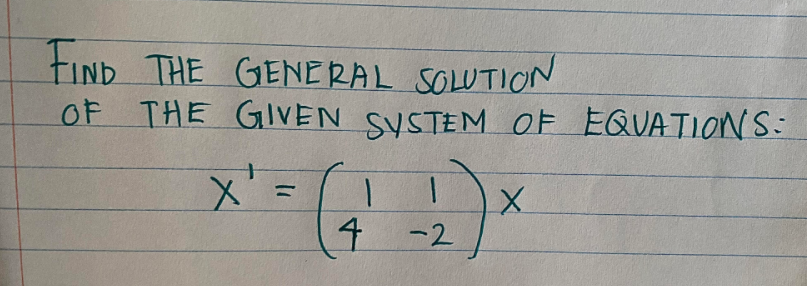 FIND THE GENERAL SOLUTION
OF THE GIVEN SYSTEM OF EQUATIONS:
X' = ( 1 1 ) X
4 -2